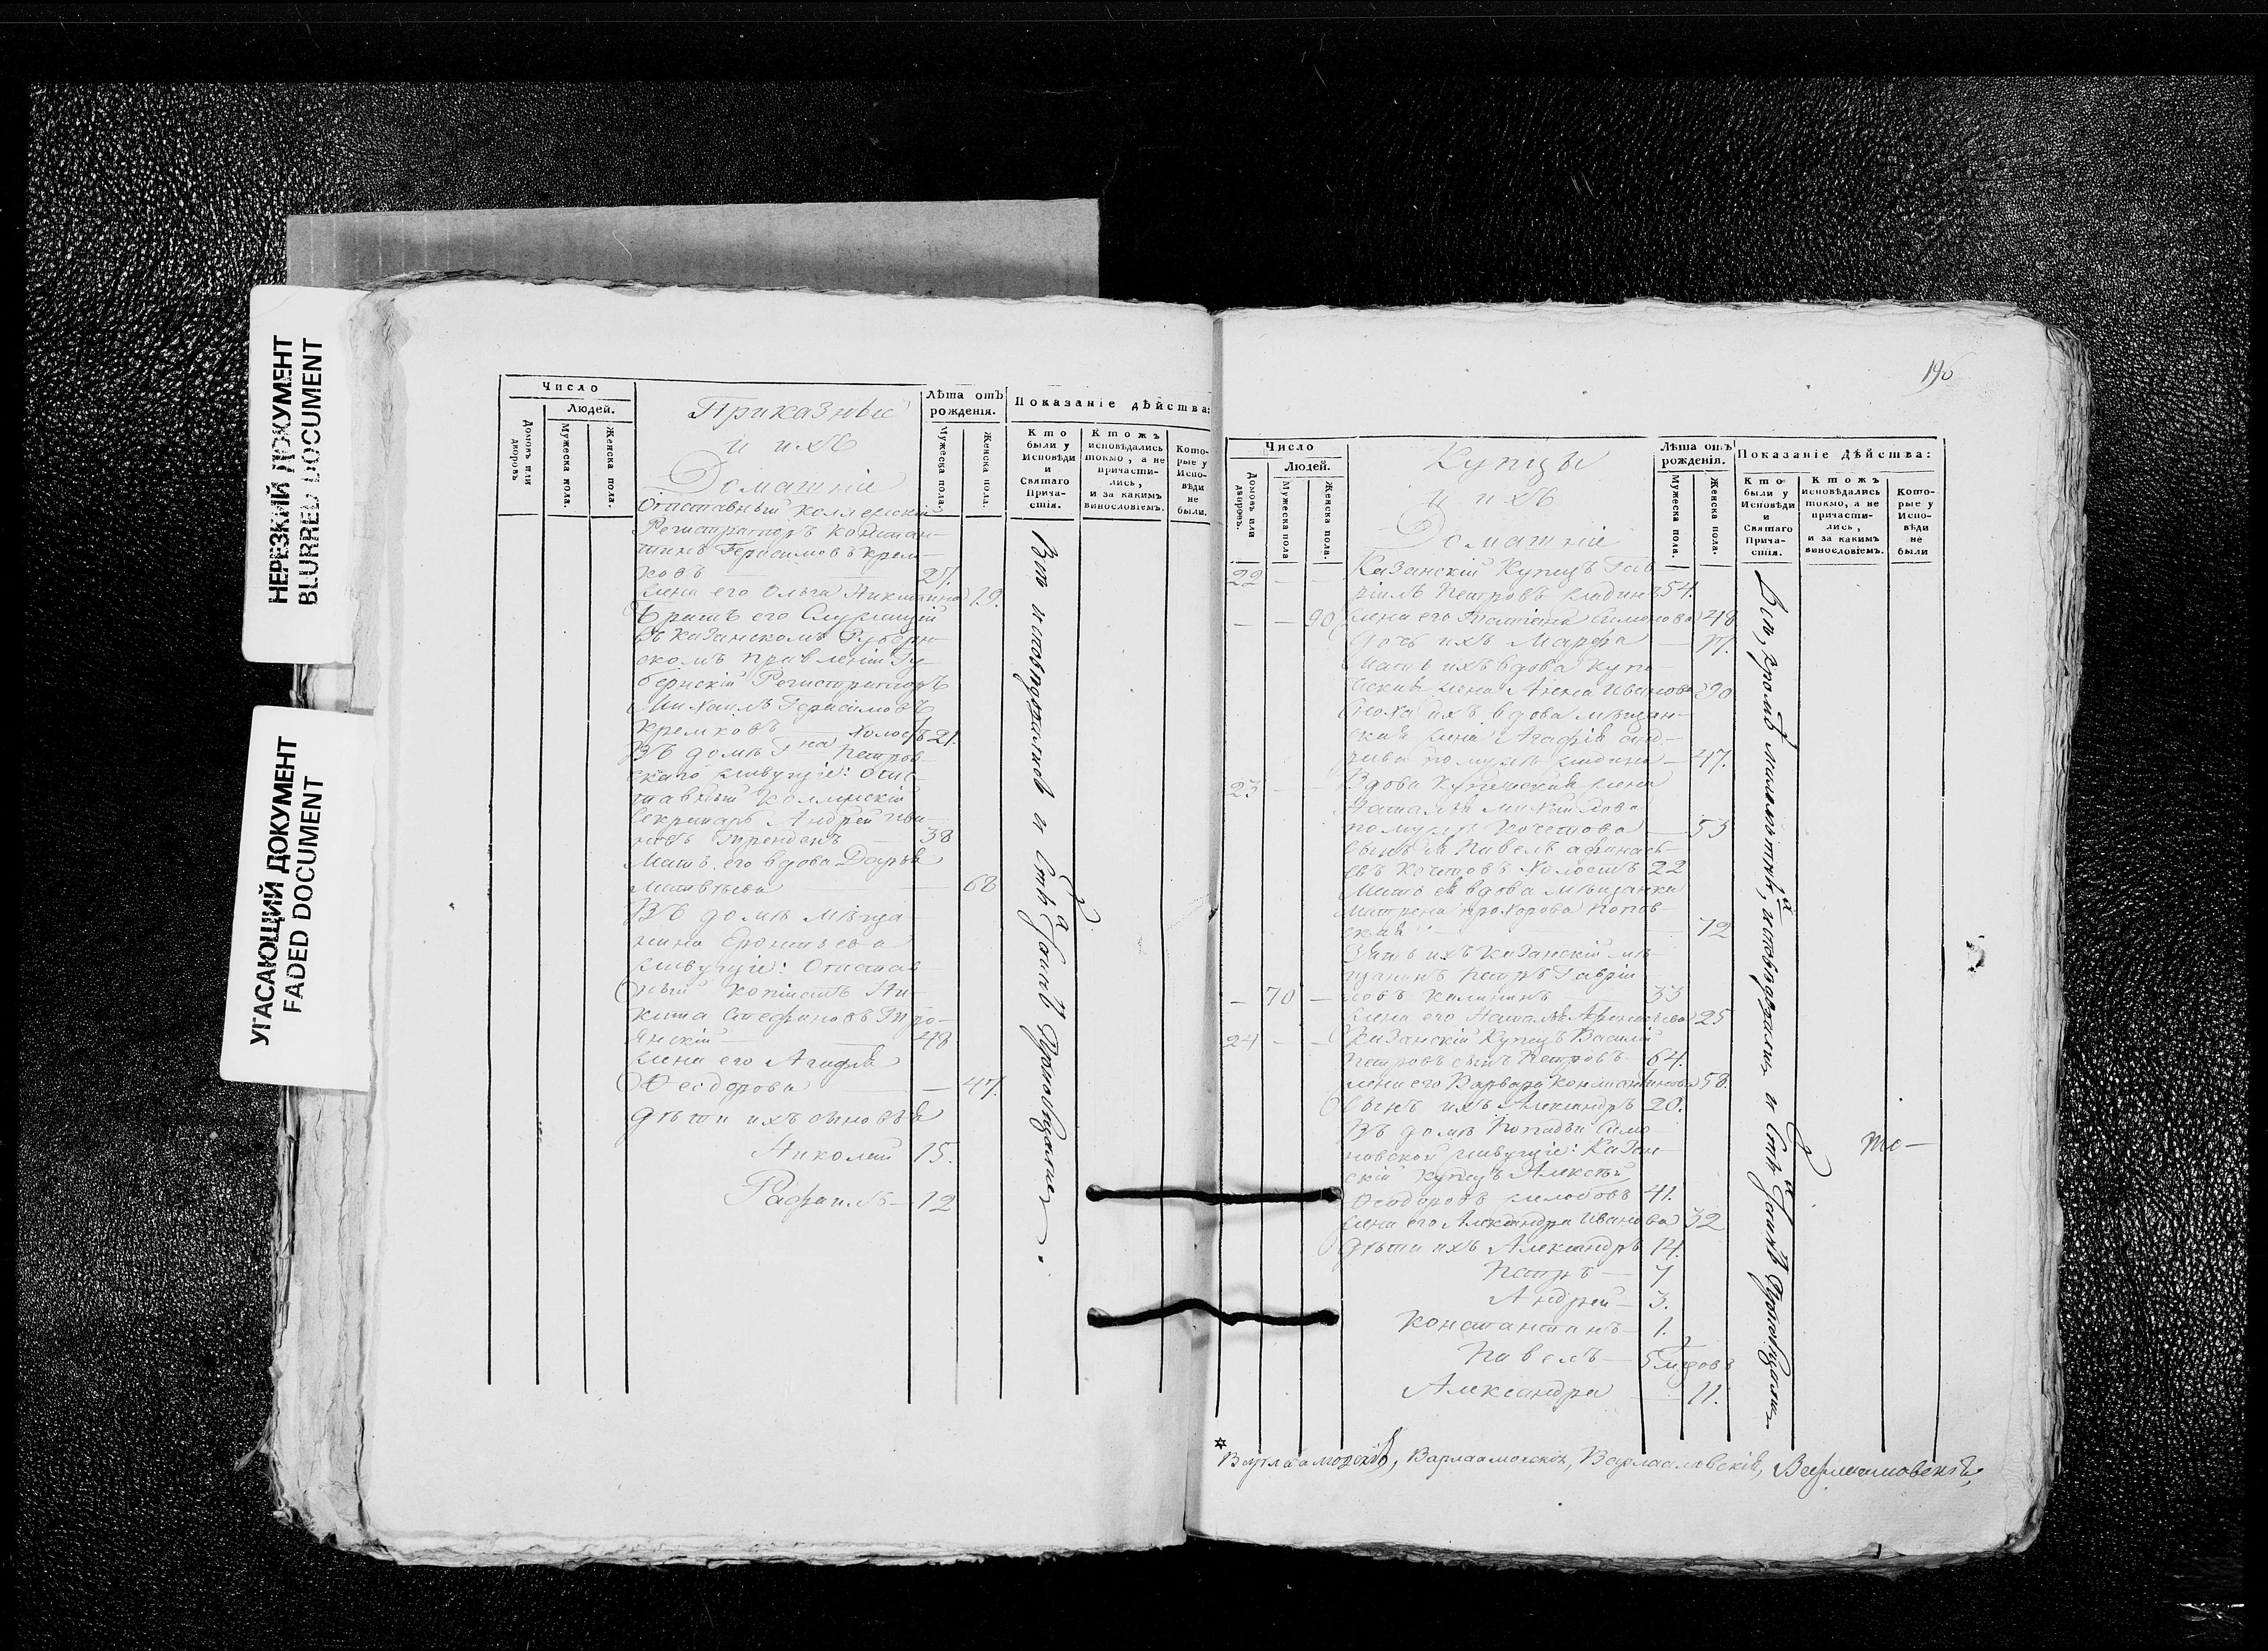 НЕРЕЗКИЙ ДОКУМЕНТ
BLURRED DOCUMENT
УГАСАЮЩИЙ ДОКУМЕНТ
FADED DOCUMENT
Число
Людей.
Домовъ или дворовъ.
Мужеска пола.
Женска пола.
Приказные
и ихъ
Домашніе
Лѣта отъ рожденія.
Мужеска пола.
Женска пола.
Показаніе дѣйства:
Кто были у Исповѣди и Святаго Прича-стія.
Ктожъ исповѣдались токмо, а не причасти-лись, и за какимъ винословіемъ.
Кото-рые у Испо-вѣди не были.
Отставный коллежскій
Регистраторъ Констан-
тинъ Герасимовъ Крем-
ковъ 27.
Жена его Ольга Никитина 19.
Братъ его Служащій
въ Казанскомъ Губерн-
скомъ правленіи Гу-
бернскій Регистраторъ
Михаилъ Герасимовъ
Кремковъ холостъ 21.
Въ домѣ Гна Петров-
скаго живущіе: Отс-
тавный Коллежскій
Секретарь Андрей Ива-
новъ 38
Мать его вдова Дарья
Матвѣева 68
Въ домѣ мѣща-
нина Еронтьева
живущіе: Отстав-
ный копіистъ Ни-
кита Стефановъ Тро-
янскій 48
Жена его Агафья
Феодорова — 47.
дѣти ихъ сыновья
Николай 15.
Рафаилъ — 12
Всѣ исповѣдались и Стыхъ Таинъ Пріобщались.
196
Число
Людей.
Домовъ или дворовъ.
Мужеска пола
Женска пола.
Купцы
и ихъ
Домашніе
Лѣта отъ рожденія.
Мужеска пола.
Женска пола.
Показаніе Дѣйства:
Кто были у Исповѣди и Святаго Прича-стія.
Ктожъ исповѣдались токмо, а не причасти-лись, и за какимъ винословіемъ.
Кото-рые у Испо-вѣди не были
22 — — Казанскій Купецъ Гав-
ріилъ Петровъ 54.
— — 90 Жена его Татіана Симонова 48
Дочь ихъ Марфа — 17.
Мать ихъ вдова Купе-
ческая жена Анна Иванова 90
Сноха ихъ вдова мѣщан-
ская жена Агафія Анд-
реева по мужѣ — 47.
23 — — Вдова Купеческая жена
Наталья Михайлова
по мужѣ Кочетова — 53
Сынъ ея Павелъ Афанась-
евъ Кочетовъ холостъ 22
Мать ея вдова мѣщанка
Матрена Прохорова Попов-
ская 72
Зять ихъ Казанскій мѣ-
щанинъ Петръ Гаврін-
— 70 — ловъ Калининъ 33
Жена его Наталья Афанасьева 25
24 — — Казанскій Купецъ Василій
Петровъ сынъ Петровъ 64.
Жена его Варвара Константинова 58.
Сынъ ихъ Александръ 20.
Въ домѣ Попадьи Симо-
новской живущіе: Казан-
скій Купецъ Алексѣй
Феодоровъ 41.
Жена его Александра Иванова 32
Дѣти ихъ Александръ 14.
Петръ — 7
Андрей — 3.
Константинъ — 1.
Павелъ — 5 мцовъ
Александра — 11.
Всѣ, кромѣ малолѣтныхъ, исповѣдались и Стыхъ Таинъ Пріобщались
то—
Варлаамовскія, Варлаамовскія, Варлаамовскія, Варлаамовскія,